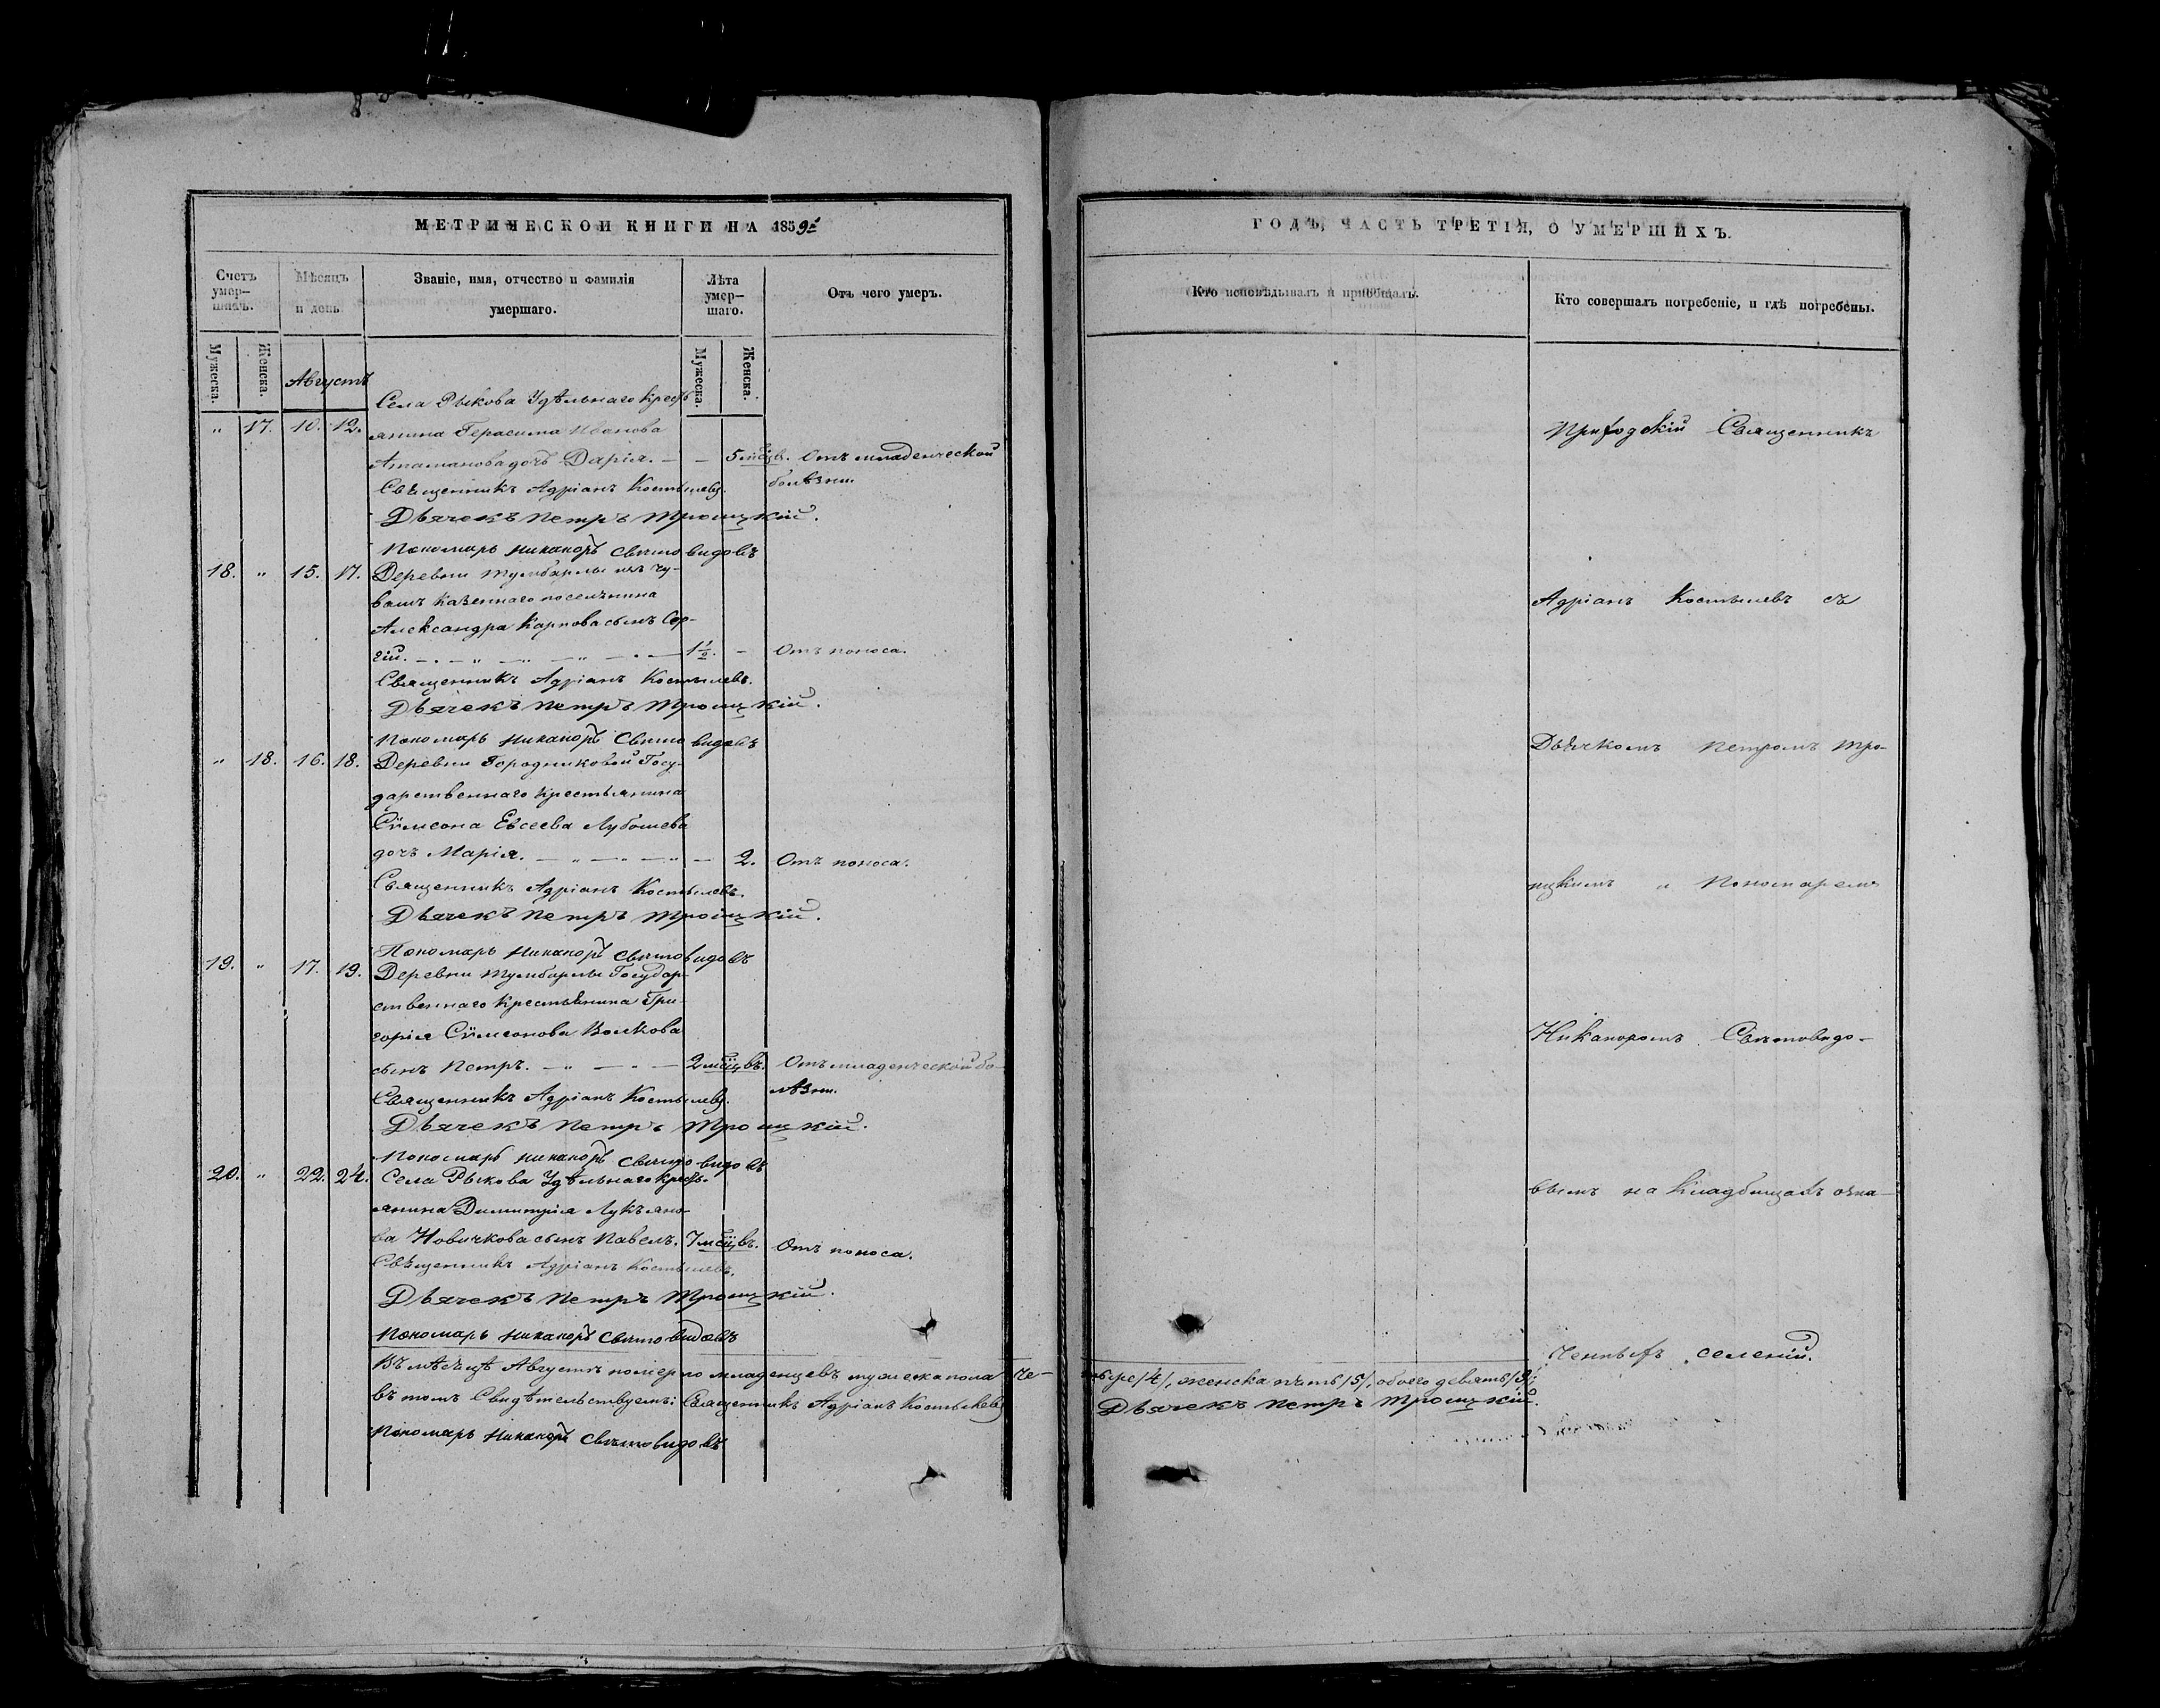 МЕТРИЧЕСКОЙ КНИГИ НА 1859й
Счетъ умер-шихъ.
Мѣсяцъ и день.
Званіе, имя, отчество и фамилія умершаго.
Лѣта умер-шаго.
Отъ чего умеръ.
Мужеска.
Женска.
Августъ
Мужеска.
Женска.
Села Рыкова Удѣльнаго крест
" 17. 10. 12. янина Герасима Иванова
Атаманова дочь Дарія. — — 5 мсцв. Отъ младенческой
болѣзни.
Священникъ Адріанъ Костылевъ.
Дьячекъ Петръ Троицкій.
Пономарь Никаноръ Святовидовъ
18. " 15. 17. Деревни Тумбарлы изъ чу-
вашъ казеннаго поселянина
Александра Карпова сынъ Сер-
гій. — 1½. — Отъ поноса.
Священникъ Адріанъ Костылевъ.
Дьячекъ Петръ Троицкій.
Пономарь Никаноръ Святовидовъ
" 18. 16. 18. Деревни Городниковой Госу-
дарственнаго крестьянина
Сѵмеона Евсеева Лубошева
дочь Марія. — " — " — " — 2. Отъ поноса.
Священникъ Адріанъ Костылевъ.
Дьячекъ Петръ Троицкій.
Пономарь Никаноръ Святовидовъ
19. " 17. 19. Деревни Тумбарлы Государ-
ственнаго крестьянина Гри-
горія Сѵмеонова Волкова
сынъ Петръ. — " — " — 2 мсцвъ. Отъ младенческой бо-
лѣзни.
Священникъ Адріанъ Костылевъ.
Дьячекъ Петръ Троицкій.
Пономарь Никаноръ Святовидовъ
20. " 22. 24. Села Рыкова Удѣльнаго крест-
янина Димитрія Лукъяно-
ва Новичкова сынъ Павелъ. 7 мсцвъ. Отъ поноса.
Священникъ Адріанъ Костылевъ.
Дьячекъ Петръ Троицкій.
Пономарь Никаноръ Святовидовъ
Въ мѣсяцѣ Августѣ померло младенцевъ мужеска пола че-
въ томъ свидѣтельствуемъ: Священникъ Адріанъ Костылевъ
Пономарь Никаноръ Святовидовъ
ГОДЪ, ЧАСТЬ ТРЕТІЯ, О УМЕРШИХЪ.
Кто исповѣдывалъ и пріобщалъ.
Кто совершалъ погребеніе, и гдѣ погребены.
Приходскій Священникъ
Адріанъ Костылевъ съ
Дьячкомъ Петромъ Тро-
ицкимъ и Пономаремъ
Никаноромъ Святовидо-
вымъ на кладбищахъ озна-
ченныхъ селеній.
тыре /4/, женска пять /5/, обоего девять /9/;
Дьячекъ Петръ Троицкій.